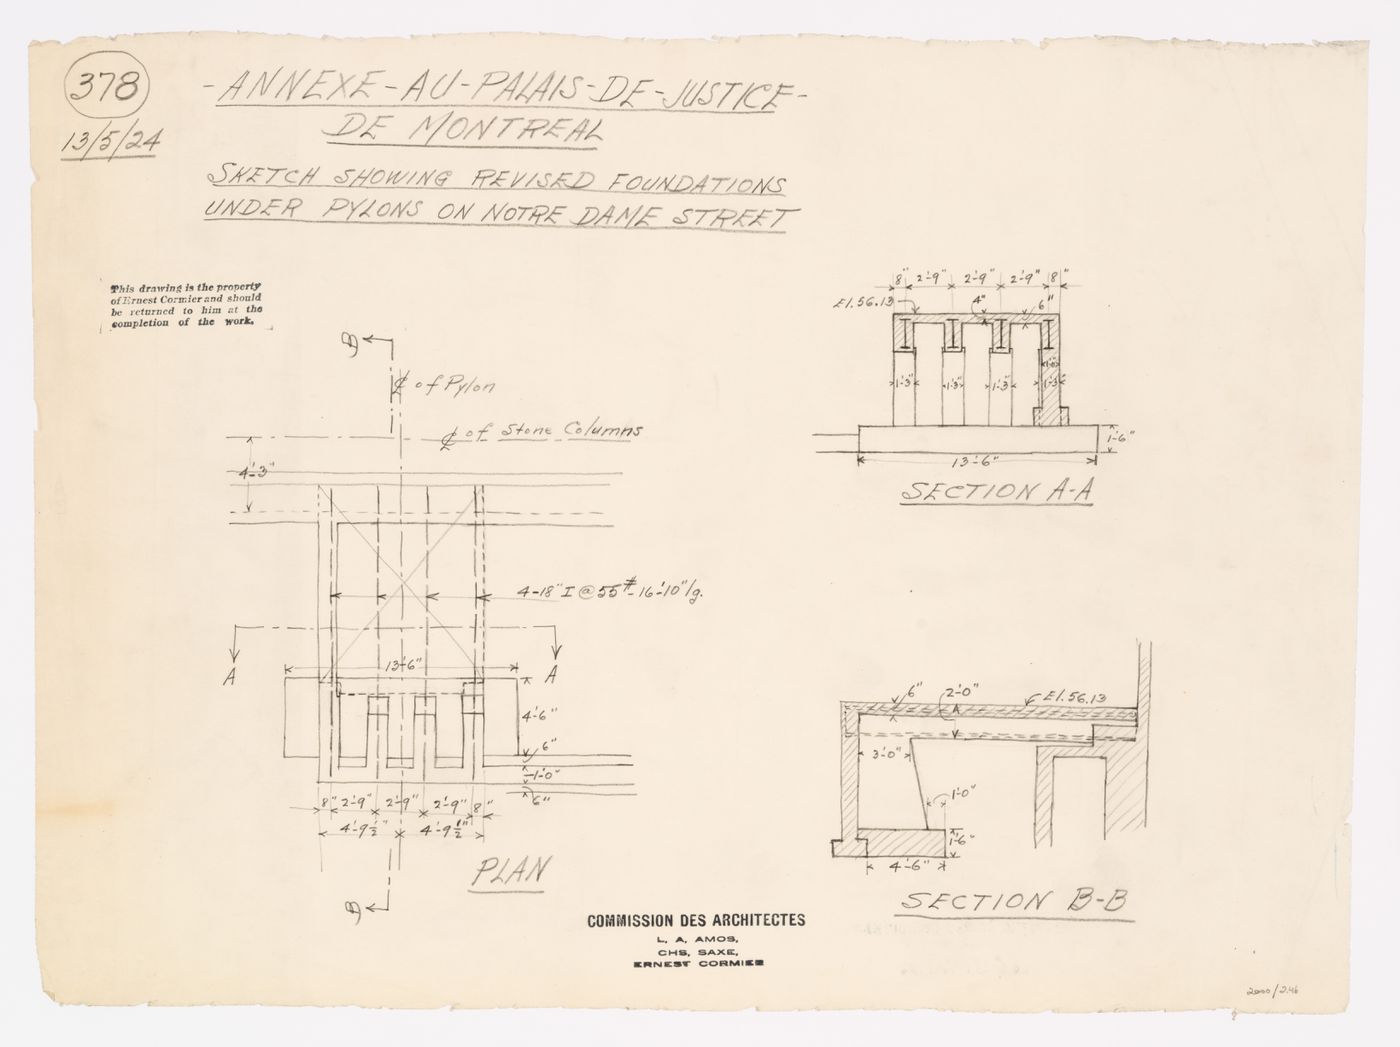 378
13/5/24
-ANNEXE-AU-PALAIS-DE-JUSTICE-
DE MONTREAL
SKETCH SHOWING REVISED FOUNDATIONS
UNDER PYLONS ON NOTRE DAME STREET
This drawing is the property
of Ernest Cormier and should
be returned to him at the
completion of the work.
B
℄ of Pylon
℄ of Stone Columns
4'-3"
4-18" I @ 55# - 16'-10" lg.
A
A
13'-6"
4'-6"
6"
1'-0"
6"
8" 2'-9" 2'-9" 2'-9" 8"
4'-9½" 4'-9½"
B
PLAN
8" 2'-9" 2'-9" 2'-9" 8"
El. 56.13
4"
6"
1'-3" 1'-3" 1'-3" 1'-3"
1'-6"
13'-6"
SECTION A-A
6"
2'-0"
El. 56.13
3'-0"
1'-0"
1'-6"
4'-6"
SECTION B-B
COMMISSION DES ARCHITECTES
L. A. AMOS,
CHS. SAXE,
ERNEST CORMIER